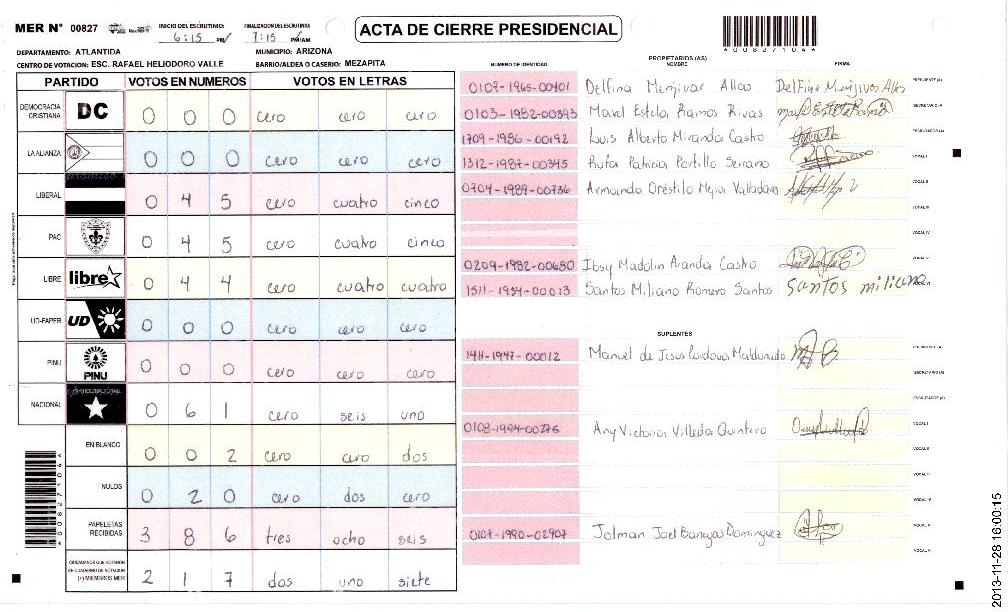 MER N° 00827
INICIO DEL ESCRUTINIO: 6:15 PM/
FINALIZACION DEL ESCRUTINIO: 7:15 PM/AM
ACTA DE CIERRE PRESIDENCIAL
*00827104*
DEPARTAMENTO: ATLANTIDA
MUNICIPIO: ARIZONA
CENTRO DE VOTACION: ESC. RAFAEL HELIODORO VALLE
BARRIO/ALDEA O CASERIO: MEZAPITA
PARTIDO VOTOS EN NUMEROS VOTOS EN LETRAS
DEMOCRACIA CRISTIANA DC 0 0 0 cero cero cero
LA ALIANZA 0 0 0 cero cero cero
LIBERAL 0 4 5 cero cuatro cinco
PAC 0 4 5 cero cuatro cinco
LIBRE libre 0 4 4 cero cuatro cuatro
UD-FAPER UD 0 0 0 cero cero cero
PINU PINU 0 0 0 cero cero cero
NACIONAL 0 6 1 cero seis uno
EN BLANCO 0 0 2 cero cero dos
NULOS 0 2 0 cero dos cero
PAPELETAS RECIBIDAS 3 8 6 tres ocho seis
CIUDADANOS QUE VOTARON EN CUADERNO DE VOTACION (+) MIEMBROS MER 2 1 7 dos uno siete
*00827104*
PROPIETARIOS (AS)
NUMERO DE IDENTIDAD NOMBRE FIRMA
0109-1965-00401 Delfina Menjivar Allao PRESIDENTE (A)
0103-1982-00393 Mavel Estela Ramos Rivas SECRETARIO (A)
1709-1986-00192 Luis Alberto Miranda Castro ESCRUTADOR (A)
1312-1987-00345 Rufa Patricia Portillo Serrano VOCAL I
0704-1989-00736 Armando Oréstilo Mejia Valladares VOCAL II
VOCAL III
VOCAL IV
0209-1982-00680 Ibsy Madolin Aranda Castro VOCAL V
1511-1954-00013 Santos Miliano Romero Santos Santos miliano VOCAL VI
SUPLENTES
1411-1947-00012 Manuel de Jesus Cordova Maldonado PRESIDENTE (A)
SECRETARIO (A)
ESCRUTADOR (A)
0108-1994-00276 Any Victoria Villeda Quintero VOCAL I
VOCAL II
VOCAL III
VOCAL IV
0107-1990-02907 Jolman Joel Banegas Dominguez VOCAL V
VOCAL VI
2013-11-28 16:00:15